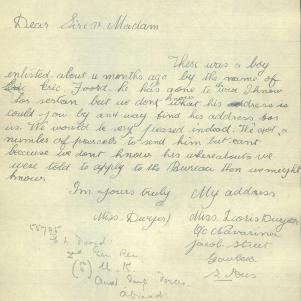 Dear Sir or Madam
There was a boy
enlisted about 4 months ago by the name of
Eric Foord. he has gone to time I know
for certan but we dont know what his address is
could you by any way find his address for
us. We would be very pleased indeed. The got a
number of parcels to send him but cant
because we dont know his wherabouts we
were told to apply to the Bureau then we might
know
Im yours truly My address
Miss. Dwyer Miss. Doris Dwyer
C/o
Jacob Street
Goulburn
abroad